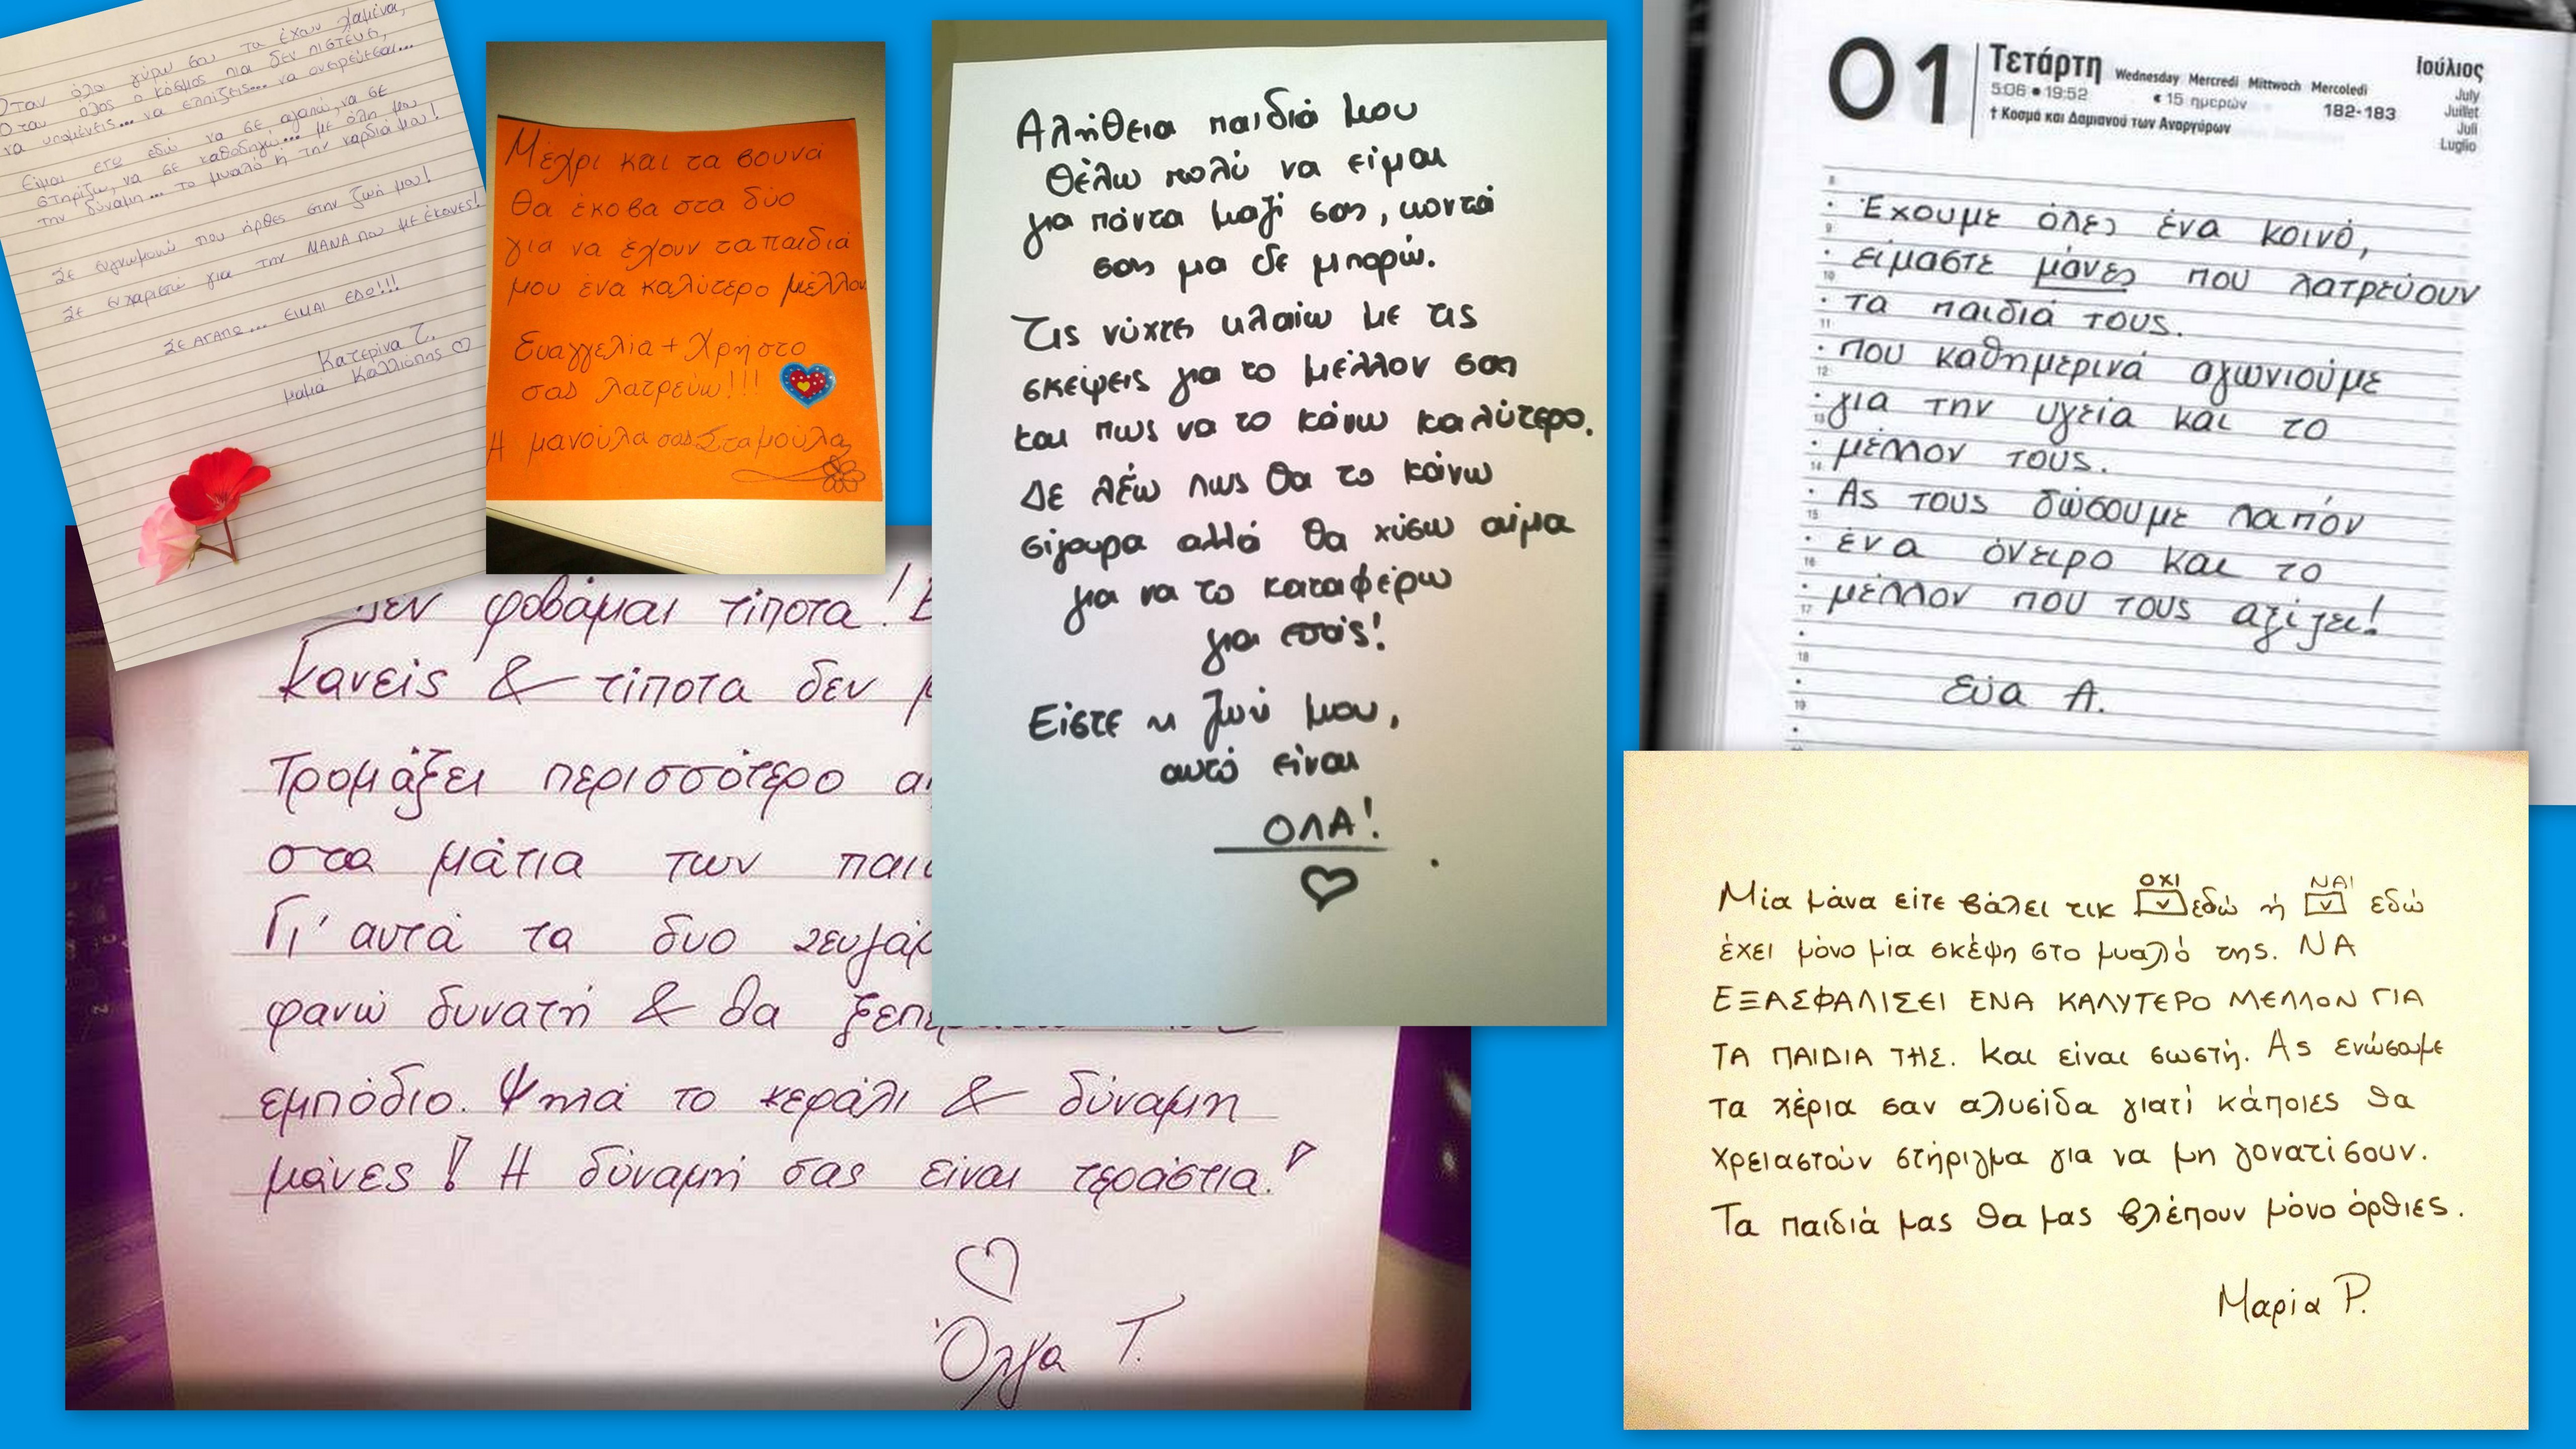 Όταν όλα γύρω σου τα έχουν χαμένα,
Όταν όλος ο κόσμος πια δεν πιστεύει,
να υπομένεις... να ελπίζεις... να ονειρεύεσαι...
Είμαι εγώ εδώ να σε αγαπώ, να σε
στηρίζω, να σε καθοδηγώ... με όλη μου
την δύναμη... το μυαλό ή την καρδιά μου!
Σε ευγνωμονώ που ήρθες στην ζωή μου!
Σε ευχαριστώ για την ΜΑΝΑ που με έκανες!
ΣΕ ΑΓΑΠΩ... ΕΙΜΑΙ ΕΔΩ!!!
Κατερίνα Τ.
μαμά Καλλιόπης ♡
Μέχρι και τα βουνά
θα έκοβα στα δύο
για να έχουν τα παιδιά
μου ένα καλύτερο μέλλον
Ευαγγελία + Χρήστο
σας λατρεύω!!!
Η μανούλα σας Σταμούλα
Αλήθεια παιδιά μου
θέλω πολύ να είμαι
για πάντα μαζί σας, κοντά
σας μα δε μπορώ.
Τις νύχτες κλαίω με τις
σκέψεις για το μέλλον σας
και πως να το κάνω καλύτερο.
Δε λέω πως θα το κάνω
σίγουρα αλλά θα χύσω αίμα
για να το καταφέρω
για εσάς!
Είστε η ζωή μου,
αυτό είναι
ΟΛΑ!
♡
01
Τετάρτη Wednesday Mercredi Mittwoch Mercoledi
5:06 • 19:52 15 ημερών 182-183
† Κοσμά και Δαμιανού των Αναργύρων
Ιούλιος
July
Juillet
Juli
Luglio
8
Έχουμε όλες ένα κοινό,
9
είμαστε μάνες που λατρεύουν
10
τα παιδιά τους.
11
που καθημερινά αγωνιούμε
12
για την υγεία και το
13
μέλλον τους.
14
Ας τους δώσουμε λαπόν
15
ένα όνειρο και το
16
μέλλον που τους αξίζει!
17
18
Εύα Α.
19
Δεν φοβάμαι τίποτα!
κανείς & τίποτα δεν
Τρομάξει περισσότερο
στα μάτια των
Γι' αυτά τα δυο
φανώ δυνατή & θα
εμπόδιο. Ψηλά το κεφάλι & δύναμη
μάνες! Η δύναμή σας είναι τεράστια!
♡
Όλγα Τ.
Μία μάνα είτε βάλει τικ ΟΧΙ εδώ ή ΝΑΙ εδώ
έχει μόνο μία σκέψη στο μυαλό της. ΝΑ
ΕΞΑΣΦΑΛΙΣΕΙ ΕΝΑ ΚΑΛΥΤΕΡΟ ΜΕΛΛΟΝ ΓΙΑ
ΤΑ ΠΑΙΔΙΑ ΤΗΣ. Και είναι σωστή. Ας ενώσομε
τα χέρια σαν αλυσίδα γιατί κάποιες θα
χρειαστούν στήριγμα για να μη γονατίσουν.
Τα παιδιά μας θα μας βλέπουν μόνο όρθιες.
Μαρία Ρ.